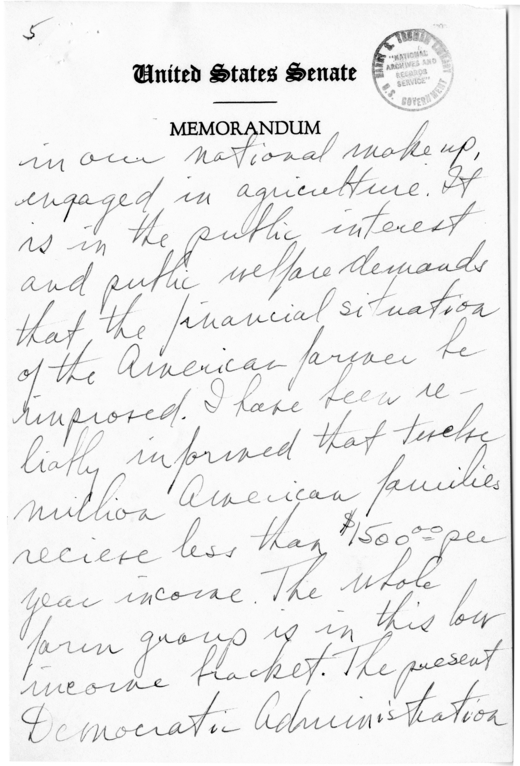 5
United States Senate
MEMORANDUM
HARRY S. TRUMAN LIBRARY
"NATIONAL
ARCHIVES AND
RECORDS
SERVICE"
U.S. GOVERNMENT
in our national make up,
engaged in agriculture. It
is in the public interest
and public welfare demands
that the financial situation
of the American farmer be
improved. I have been re-
liably informed that twelve
million American families
recieve less than $1500.00 per
year income. The whole
farm group is in this low
income bracket. The present
Democratic Administration